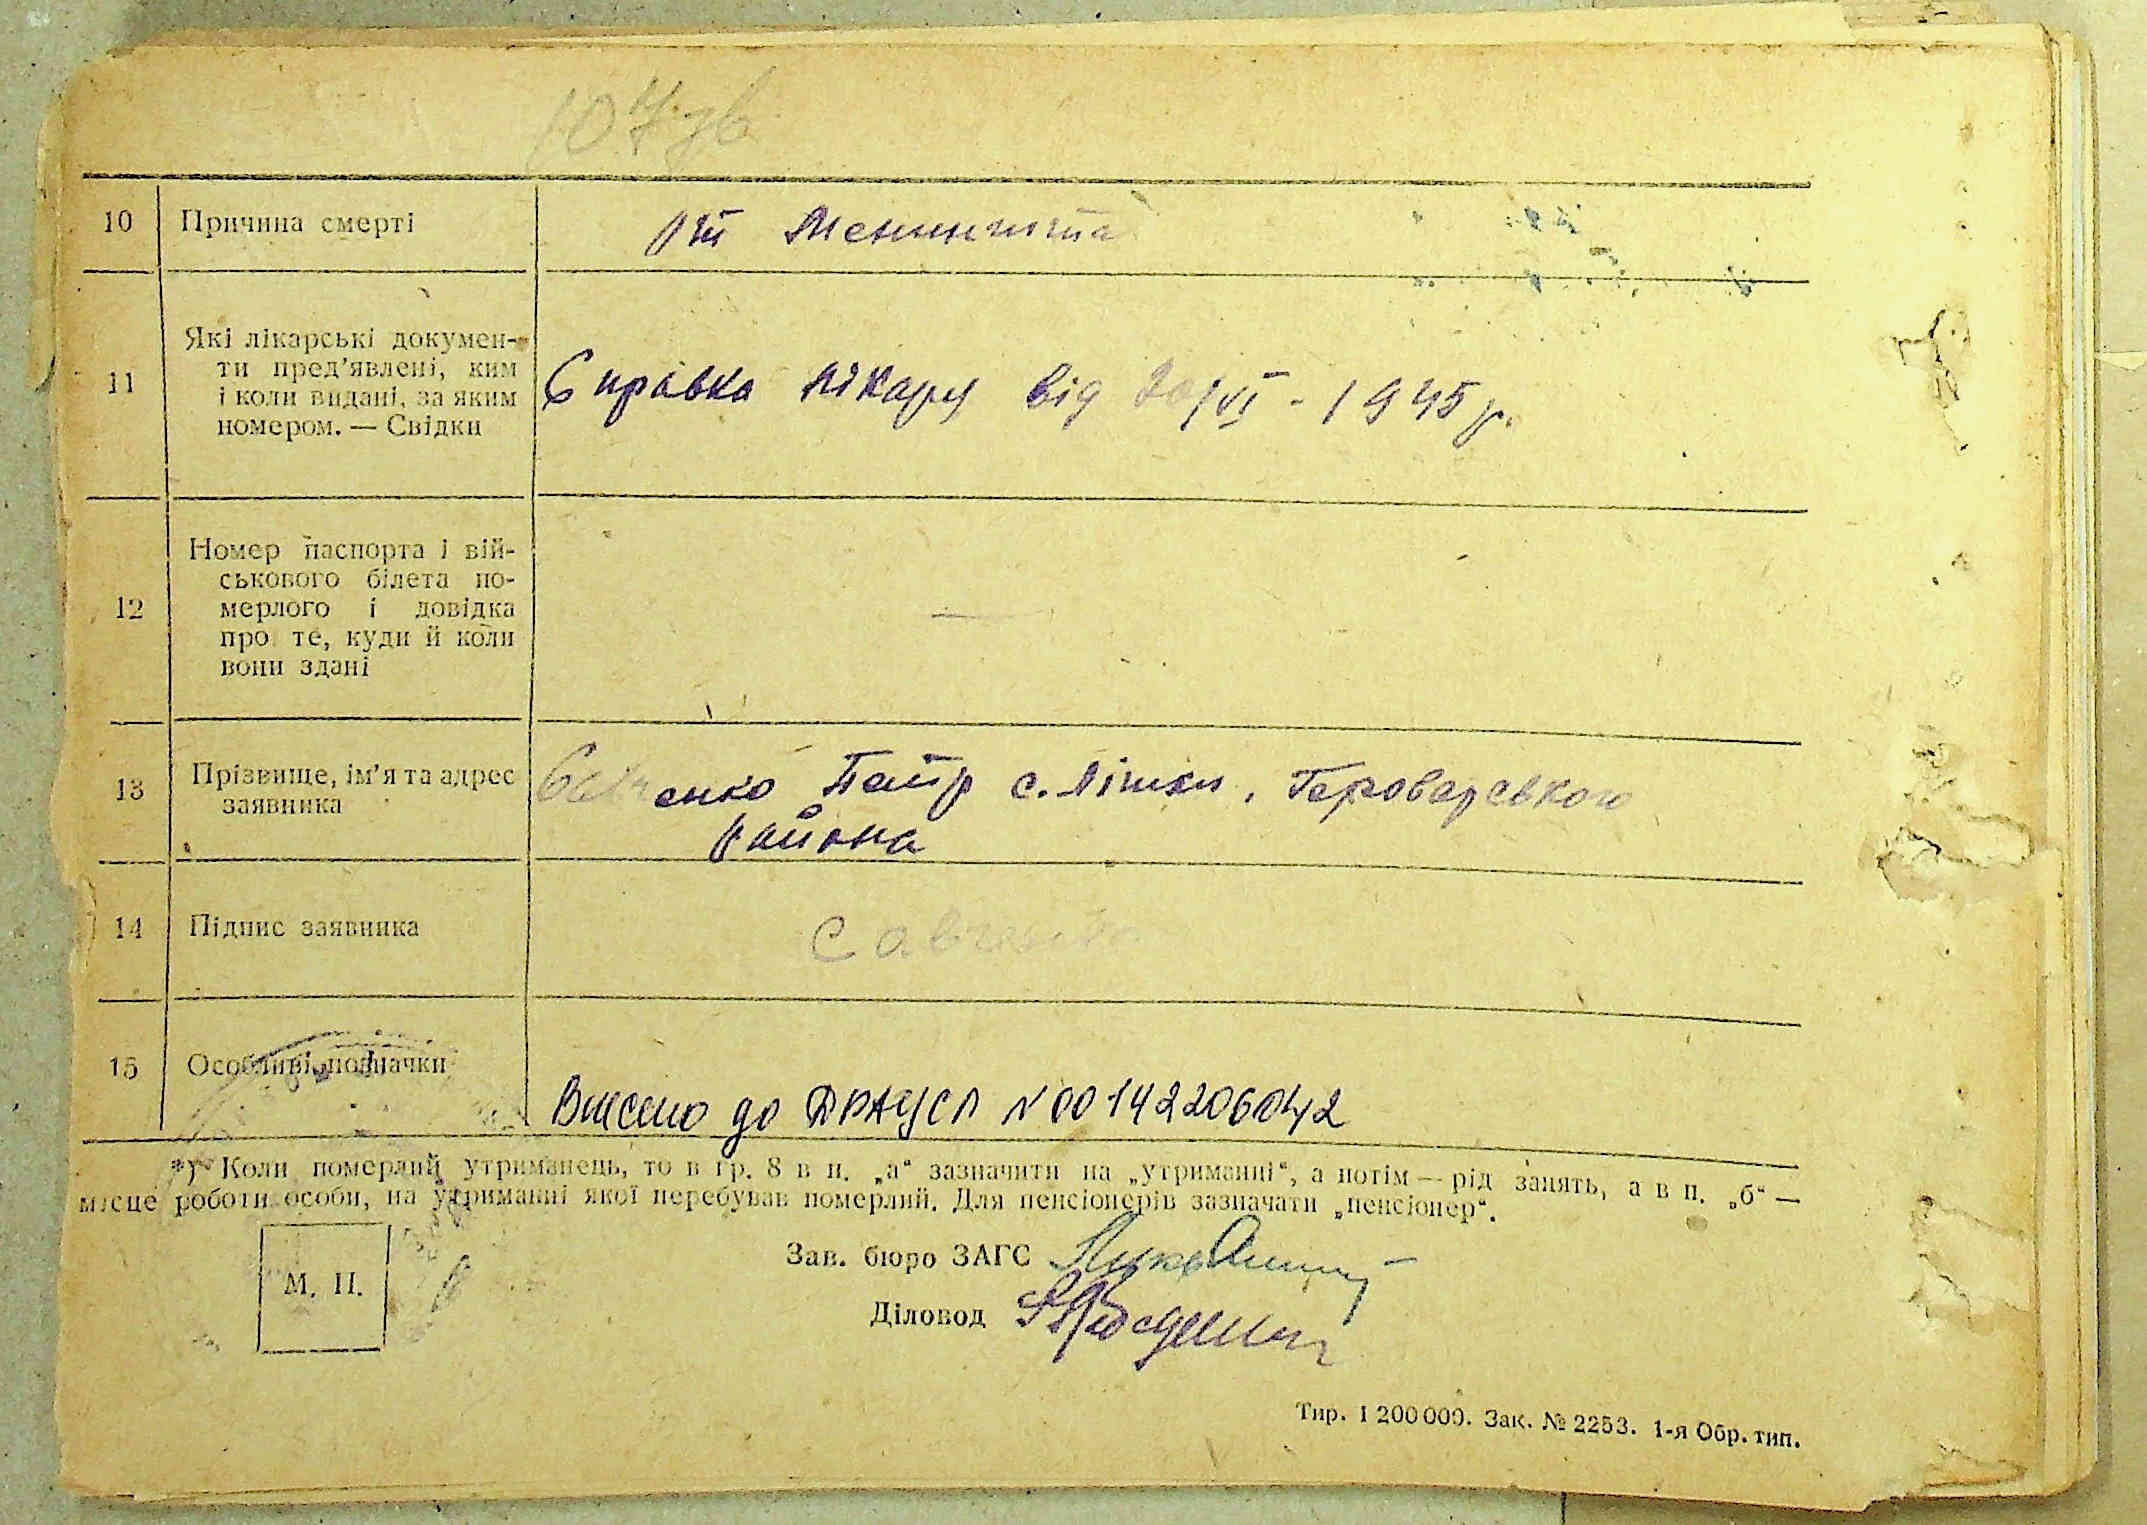 107 зв
10 Причина смерті От Менингита
11 Які лікарські докумен-
ти пред'явлені, ким
і коли видані, за яким
номером. — Свідки
Справка лікаря від 20/VI - 1945 р.
12 Номер паспорта і вій-
ськового білета по-
мерлого і довідка
про те, куди й коли
вони здані
—
13 Прізвище, ім'я та адрес
заявника
Савченко Петр с. Літки,
района
14 Підпис заявника Савченко
15 Особливі позначки
Внесено до ДРАЦСЛ №00142206042
*) Коли померлий утриманець, то в гр. 8 в п. „а“ зазначити на „утриманні“, а потім — рід занять, а в п. „б“ —
місце роботи особи, на утриманні якої перебував померлий. Для пенсіонерів зазначати „пенсіонер“.
М. П.
Зав. бюро ЗАГС
Діловод
Тир. 1 200 000. Зак. № 2253. 1-я Обр. тип.